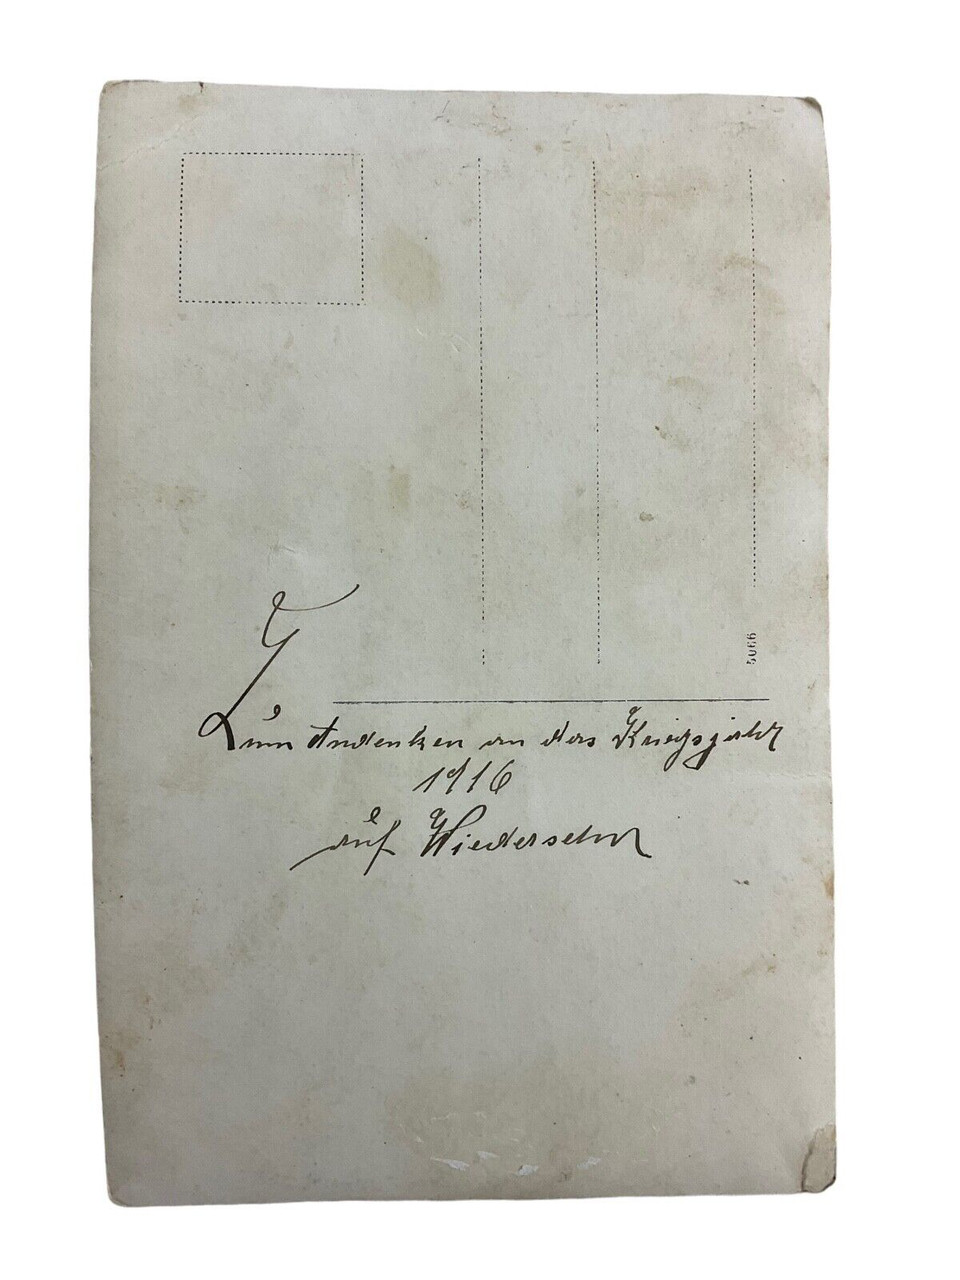 Zum Andenken an das Kriegsjahr
1916
auf Wiedersehn
5066